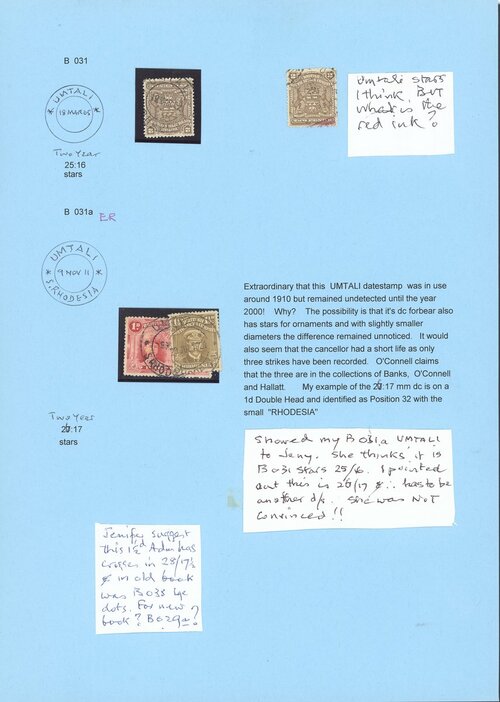 B 031
UMTALI
18 MAR 05
Two Year
25:16
stars
Umtali stars
I think BUT
what is the
red ink?
B 031a ER
UMTALI
9 NOV 11
S. RHODESIA
Extraordinary that this UMTALI datestamp was in use
around 1910 but remained undetected until the year
2000! Why? The possibility is that it's dc forbear also
has stars for ornaments and with slightly smaller
diameters the difference remained unnoticed. It would
also seem that the cancellor had a short life as only
three strikes have been recorded. O'Connell claims
that the three are in the collections of Banks, O'Connell
and Hallatt. My example of the 26:17 mm dc is on a
1d Double Head and identified as Position 32 with the
small "RHODESIA"
Two Year
26:17
stars
Showed my B031a UMTALI
to Jeny. She thinks it is
B031 stars 25/16. I pointed
out this is 26/17 ¢ ∴ has to be
another d/s. She was NOT
convinced!!
Jenifer suggest
this 1½d Adm has
crosses in 28/17½
¢ in old book
was B033 
dots. For new
book? B029a?